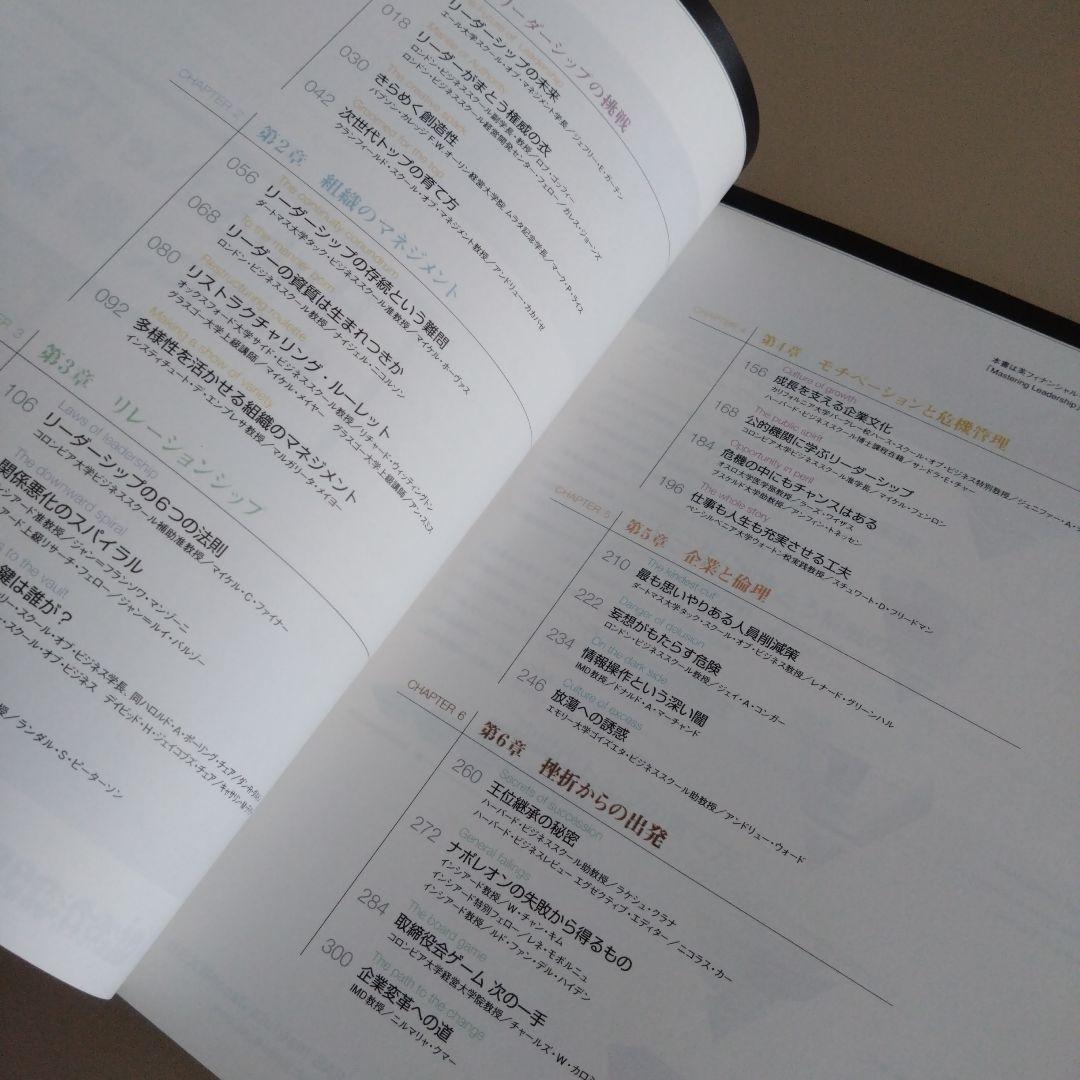 リーダーシップの挑戦
リーダーシップの未来
エール大学スクール・オブ・マネジメント学長／ジェフリー・E・ガーテン
018
リーダーがまとう権威の衣
ロンドン・ビジネススクール副学長・教授／ロブ・ゴッフィー
ロンドン・ビジネススクール経営開発センター・フェロー／ガレス・ジョーンズ
030
The creative spark
きらめく創造性
バブソン・カレッジ F・W・オーリン経営大学院 ムラタ記念学長／マーク・P・ライス
042
Groomed for the top
次世代トップの育て方
クランフィールド・スクール・オブ・マネジメント教授／アンドリュー・カカバセ
CHAPTER 2
第2章 組織のマネジメント
056
The continuity conundrum
リーダーシップの存続という難問
ダートマス大学タック・ビジネススクール准教授／マイケル・ホーヴァス
068
To the manner born
リーダーの資質は生まれつきか
ロンドン・ビジネススクール教授／ナイジェル・ニコルソン
080
Restructuring roulette
リストラクチャリング・ルーレット
オックスフォード大学サイド・ビジネススクール教授／リチャード・ウィッティントン
グラスゴー大学上級講師／マイケル・メイヤー グラスゴー大学上級講師／アン・スミス
092
Making a show of variety
多様性を活かせる組織のマネジメント
インスティテュート・デ・エンプレサ教授 マルガリータ・メイヨー
第3章 リレーションシップ
106
Laws of leadership
リーダーシップの6つの法則
コロンビア大学ビジネススクール補助准教授／マイケル・C・ファイナー
The downward spiral
関係悪化のスパイラル
インシアード准教授／ジャン＝フランソワ・マンゾーニ
上級リサーチ・フェロー／ジャン＝ルイ・バルゾー
to the vault
鍵は誰が?
スクール・オブ・ビジネス学長 同ハロルド・A・ポーリング・チェア
スクール・オブ・ビジネス デイビッド・H・ジェイコブス・チェア
／ランダル・S・ピーターソン
本書は英フィナンシャル
「Mastering Leadership」
CHAPTER 4
第4章 モチベーションと危機管理
156
Culture of growth
成長を支える企業文化
カリフォルニア大学バークレー校ハース・スクール・オブ・ビジネス特別教授／ジェニファー・A・
ハーバード・ビジネススクール博士課程在籍／サンドラ・E・チャー
168
The public spirit
公的機関に学ぶリーダーシップ
コロンビア大学ビジネススクール准学長／マイケル・フェンロン
184
Opportunity in peril
危機の中にもチャンスはある
オスロ大学医学部教授／ラーズ・ワイサス
ブスケルド大学助教授／アンフィン・トネッセン
196
The whole story
仕事も人生も充実させる工夫
ペンシルベニア大学ウォートン校実践教授／スチュワート・D・フリードマン
CHAPTER 5
第5章 企業と倫理
210
The kindest cut
最も思いやりある人員削減策
ダートマス大学タック・スクール・オブ・ビジネス教授／レナード・グリーンハル
222
Danger of delusion
妄想がもたらす危険
ロンドン・ビジネススクール教授／ジェイ・A・コンガー
234
On the dark side
情報操作という深い闇
IMD教授／ドナルド・A・マーチャンド
246
Culture of excess
放蕩への誘惑
エモリー大学ゴイズエタ・ビジネススクール助教授／アンドリュー・ウォード
CHAPTER 6
第6章 挫折からの出発
260
Secrets of succession
王位継承の秘密
ハーバード・ビジネススクール助教授／ラケシュ・クラナ
ハーバード・ビジネスレビュー エグゼクティブ・エディター／ニコラス・カー
272
General failings
ナポレオンの失敗から得るもの
インシアード教授／W・チャン・キム
インシアード特別フェロー／レネ・モボルニュ
インシアード教授／ルド・ファン・デル・ハイデン
284
The board game
取締役会ゲーム 次の一手
コロンビア大学経営大学院教授／チャールズ・W・カロミ
300
The path to the change
企業変革への道
IMD教授／ニルマリャ・クマー